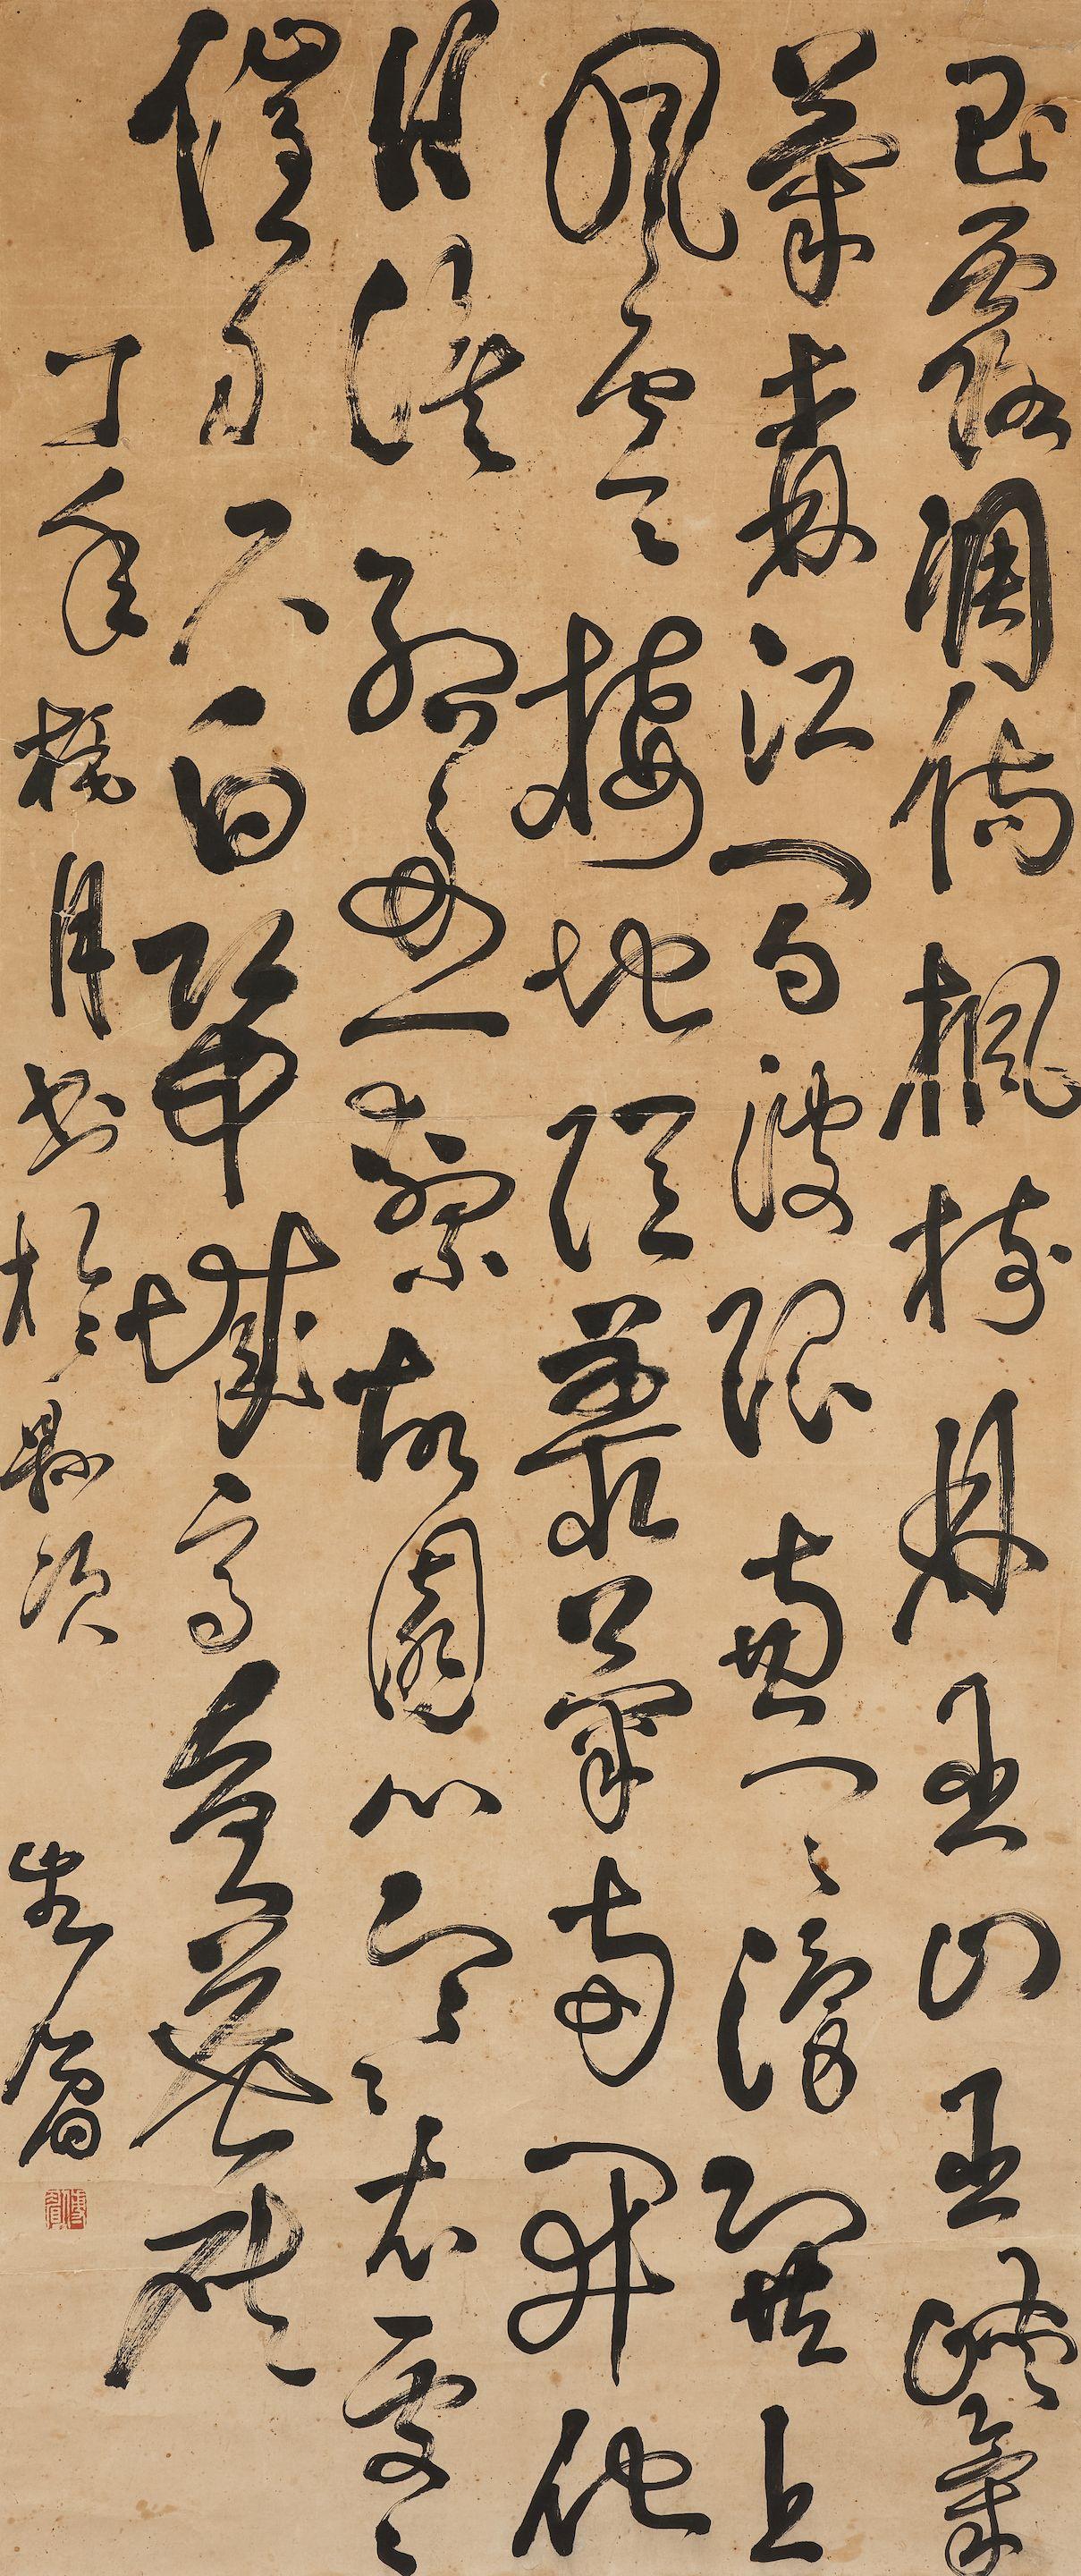 玉露凋傷楓樹林巫山巫峽氣
蕭森江間波浪兼天湧塞上
風雲接地陰叢菊兩開他
日淚孤舟一繫故園心寒衣處〻
催刀尺白帝城高急暮砧
丁 桃月書於縣次 眉